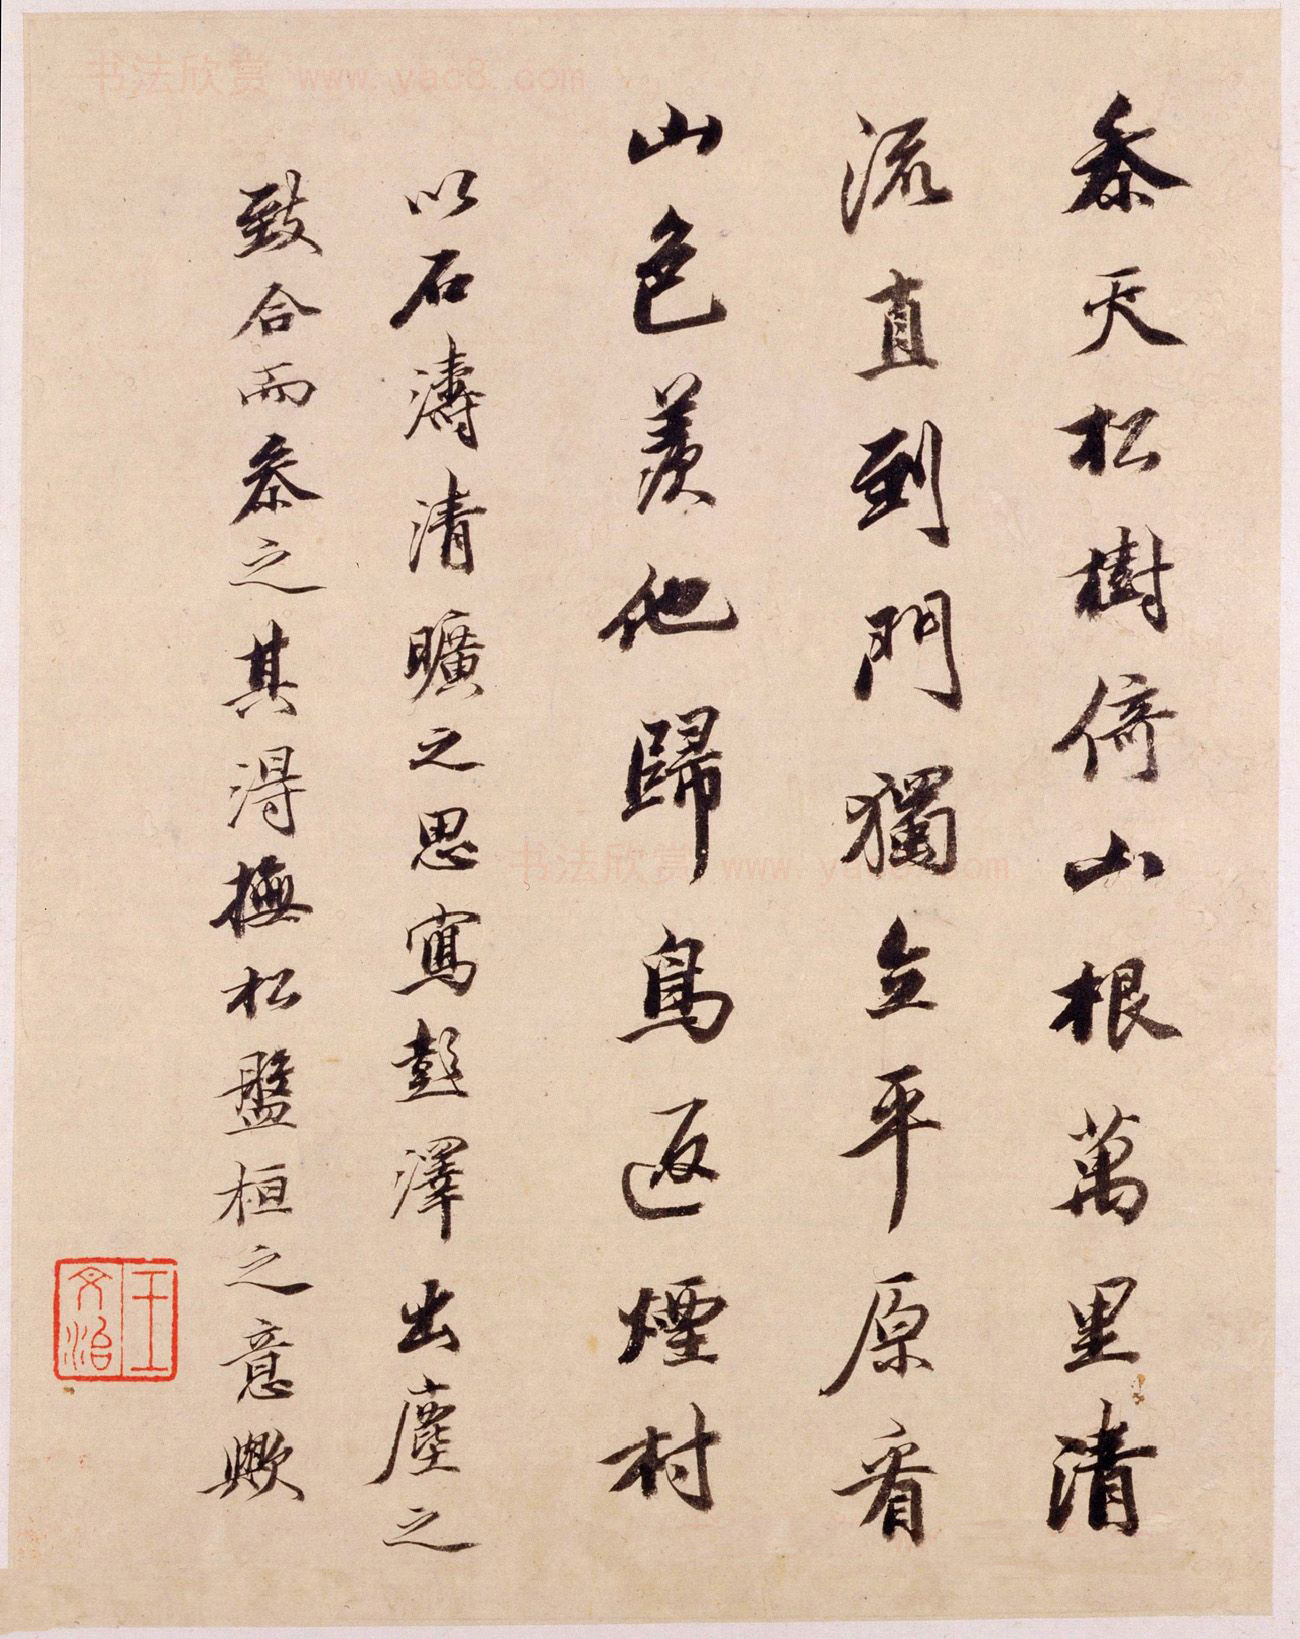 叅天松樹倚山根萬里清
流直到門獨立平原看
山色羨他歸鳥返煙村
以石濤清曠之思寫彭澤出塵之
致合而叅之其得撫松盤桓之意歟
王文治
书法欣赏 www.yac8.com
书法欣赏 www.yac8.com